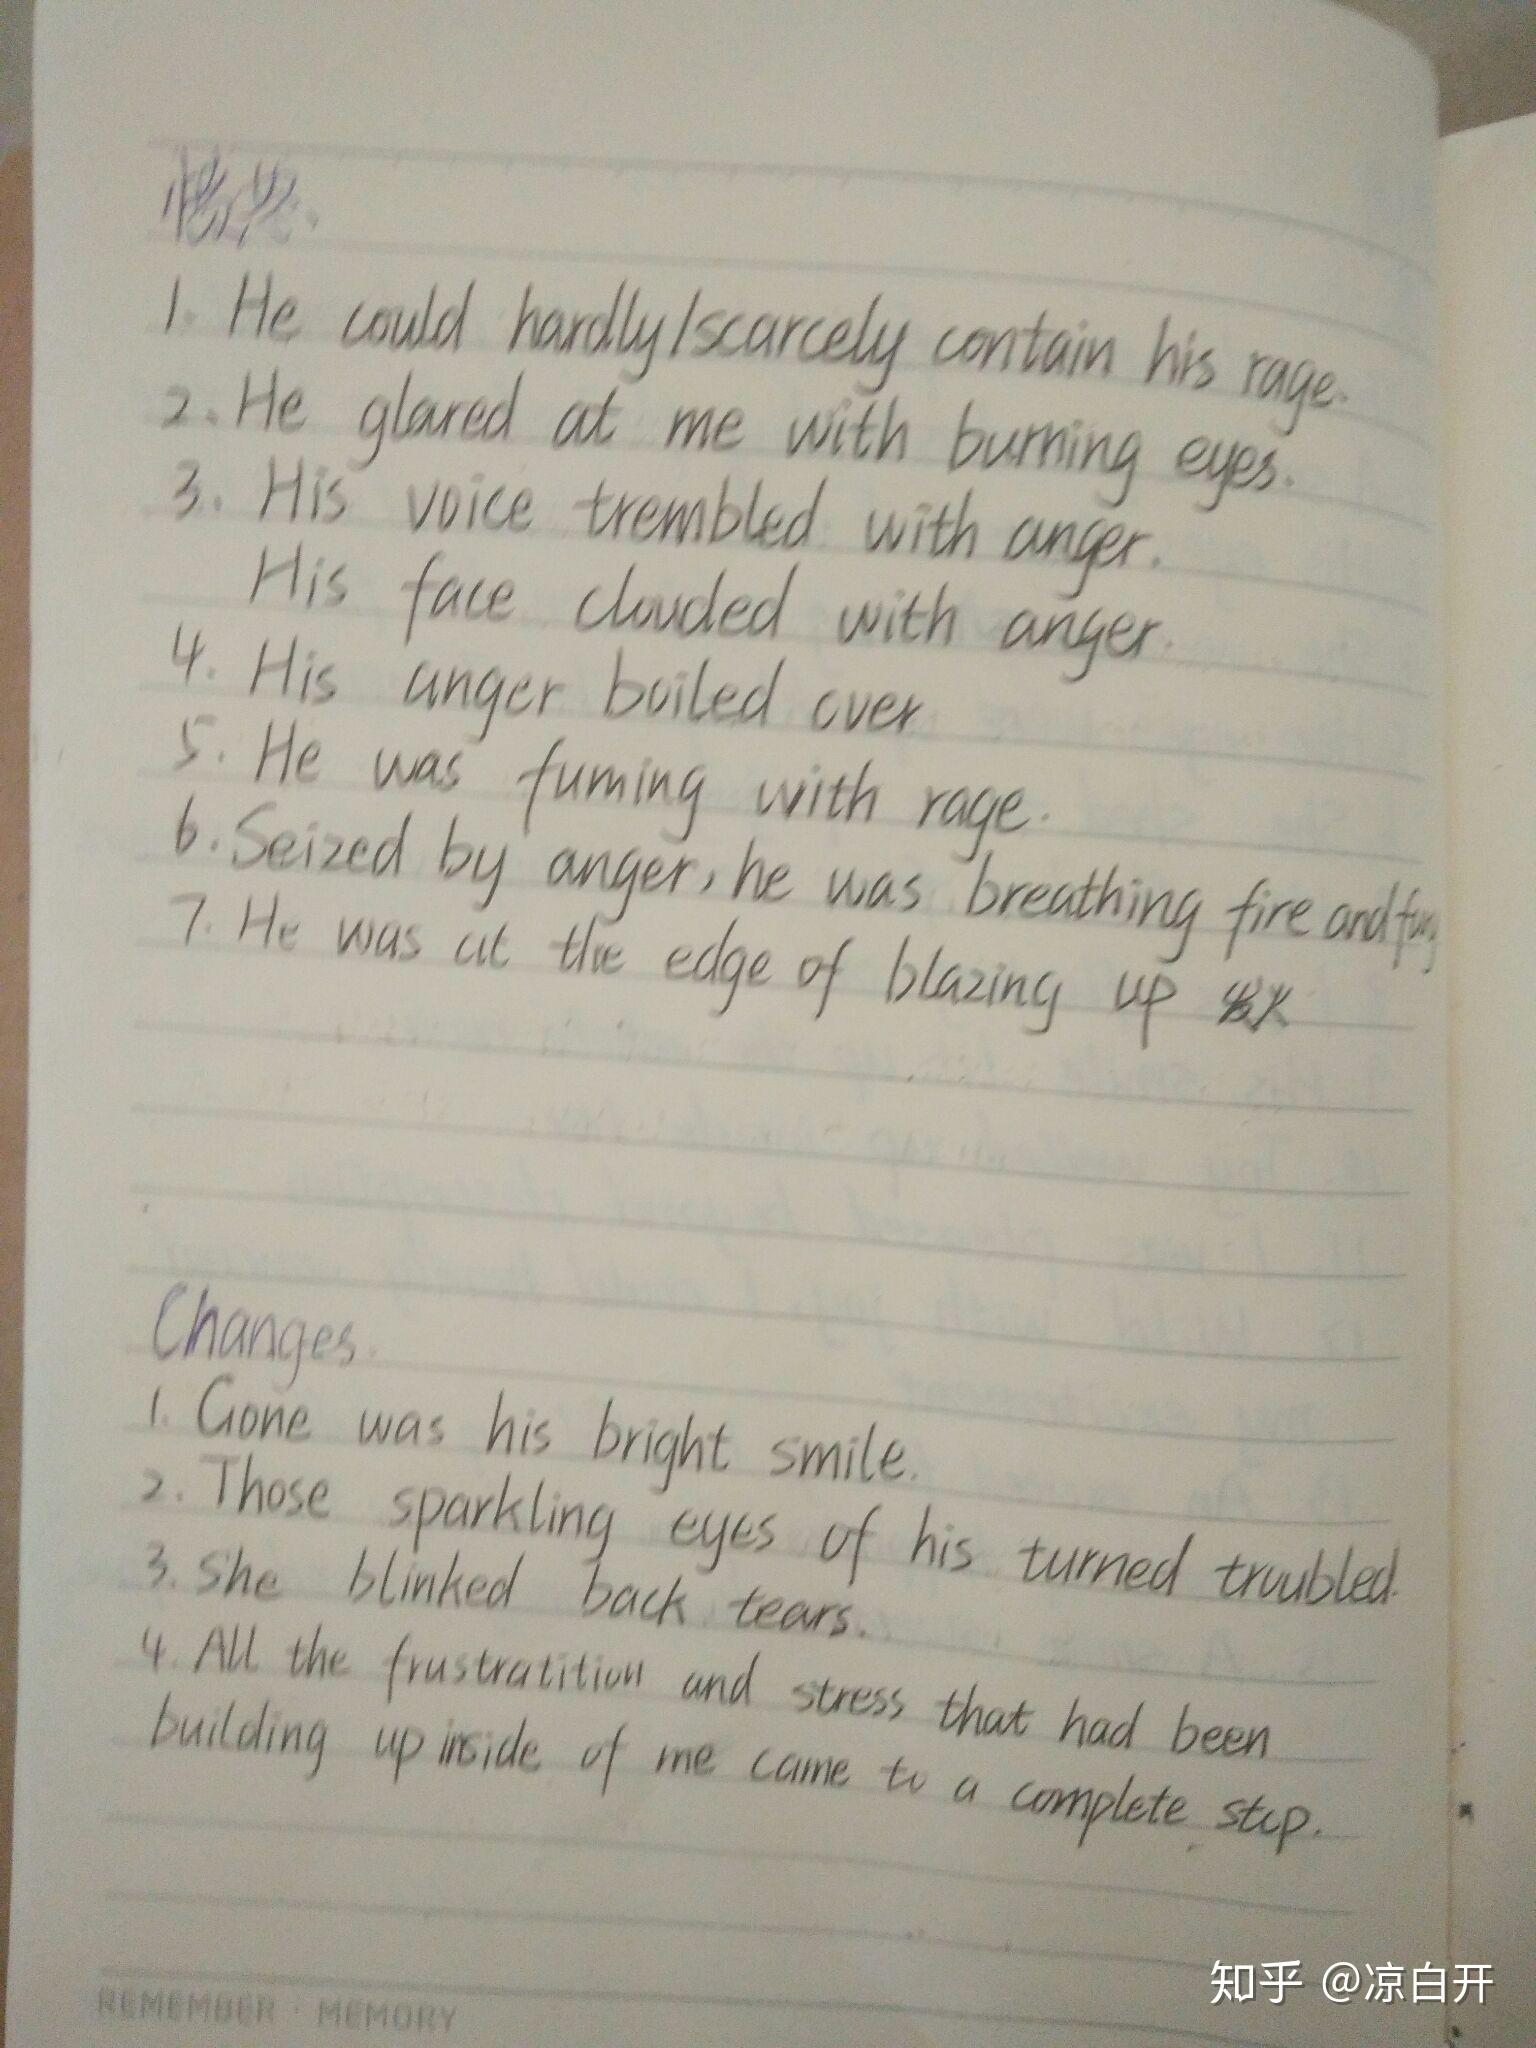 愤怒.
1. He could hardly/scarcely contain his rage.
2. He glared at me with burning eyes.
3. His voice trembled with anger.
His face clouded with anger.
4. His anger boiled over
5. He was fuming with rage.
6. Seized by anger, he was breathing fire and fury
7. He was at the edge of blazing up 发火
Changes.
1. Gone was his bright smile.
2. Those sparkling eyes of his turned troubled.
3. She blinked back tears.
4. All the frustratition and stress that had been
building up inside of me came to a complete stop.
REMEMBER · MEMORY
知乎 @凉白开